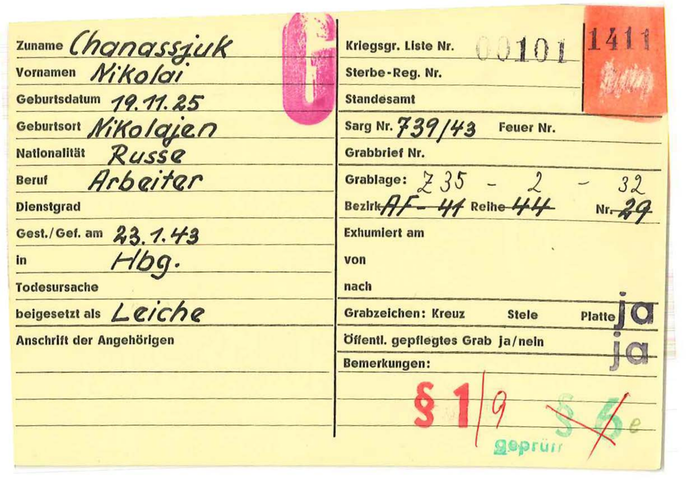 Zuname Chanassjuk
Vornamen Nikolai
Geburtsdatum 19.11.25
Geburtsort Nikolajen
Nationalität Russe
Beruf Arbeiter
Dienstgrad
Gest./Gef. am 23.1.43
in Hbg.
Todesursache
beigesetzt als Leiche
Anschrift der Angehörigen
G
Kriegsgr. Liste Nr. 00101
1411
Sterbe-Reg. Nr.
Standesamt
Sarg Nr. 739/43 Feuer Nr.
Grabbrief Nr.
Grablage: Z 35 - 2 - 32
Bezirk AF - 41 Reihe 44 Nr. 29
Exhumiert am
von
nach
Grabzeichen: Kreuz Stele Platte ja
Öffentl. gepflegtes Grab ja/nein ja
Bemerkungen:
§ 1/9 § 5 e
geprüft